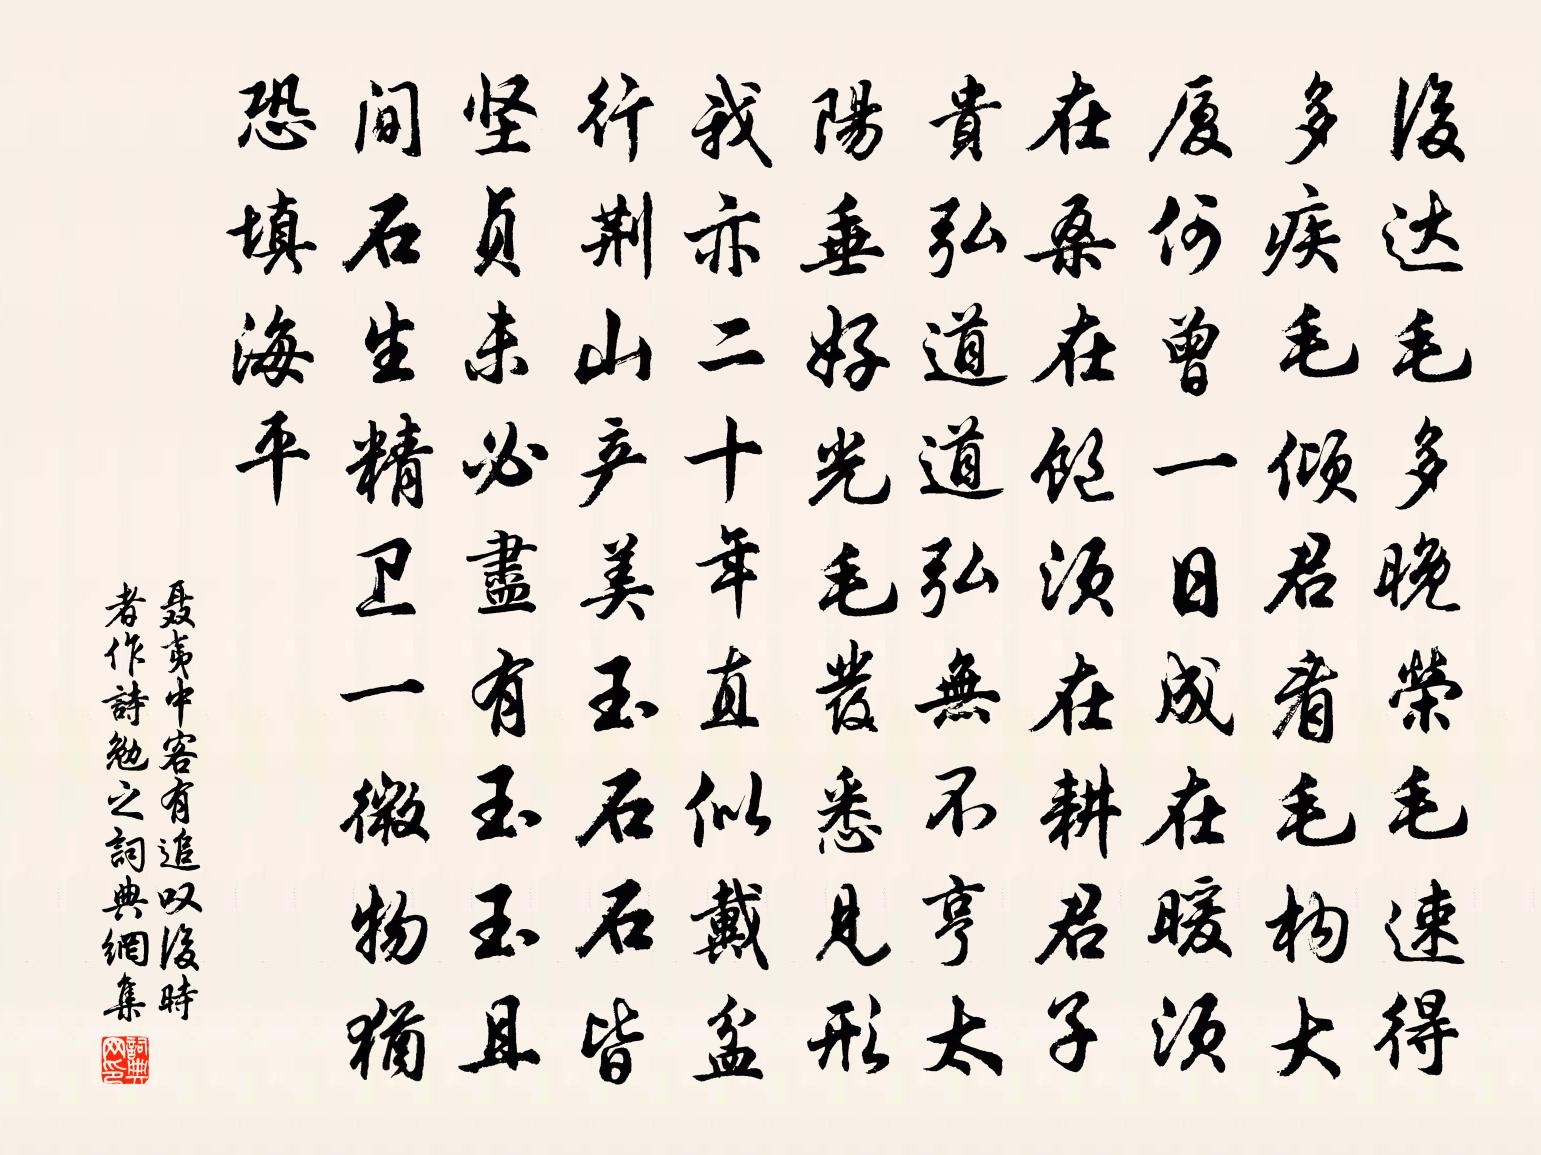 後达毛多晚榮毛速得
多疾毛倾君看毛构大
厦何曾一日成在暖须
在桑在饱须在耕君子
貴弘道道弘無不亨太
陽垂好光毛發悉見形
我亦二十年直似戴盆
行荆山产美玉石石皆
坚贞未必盡有玉玉且
间石生精卫一微物猶
恐填海平
聂夷中客有追叹後時
者作詩勉之詞典網集
詞典网印